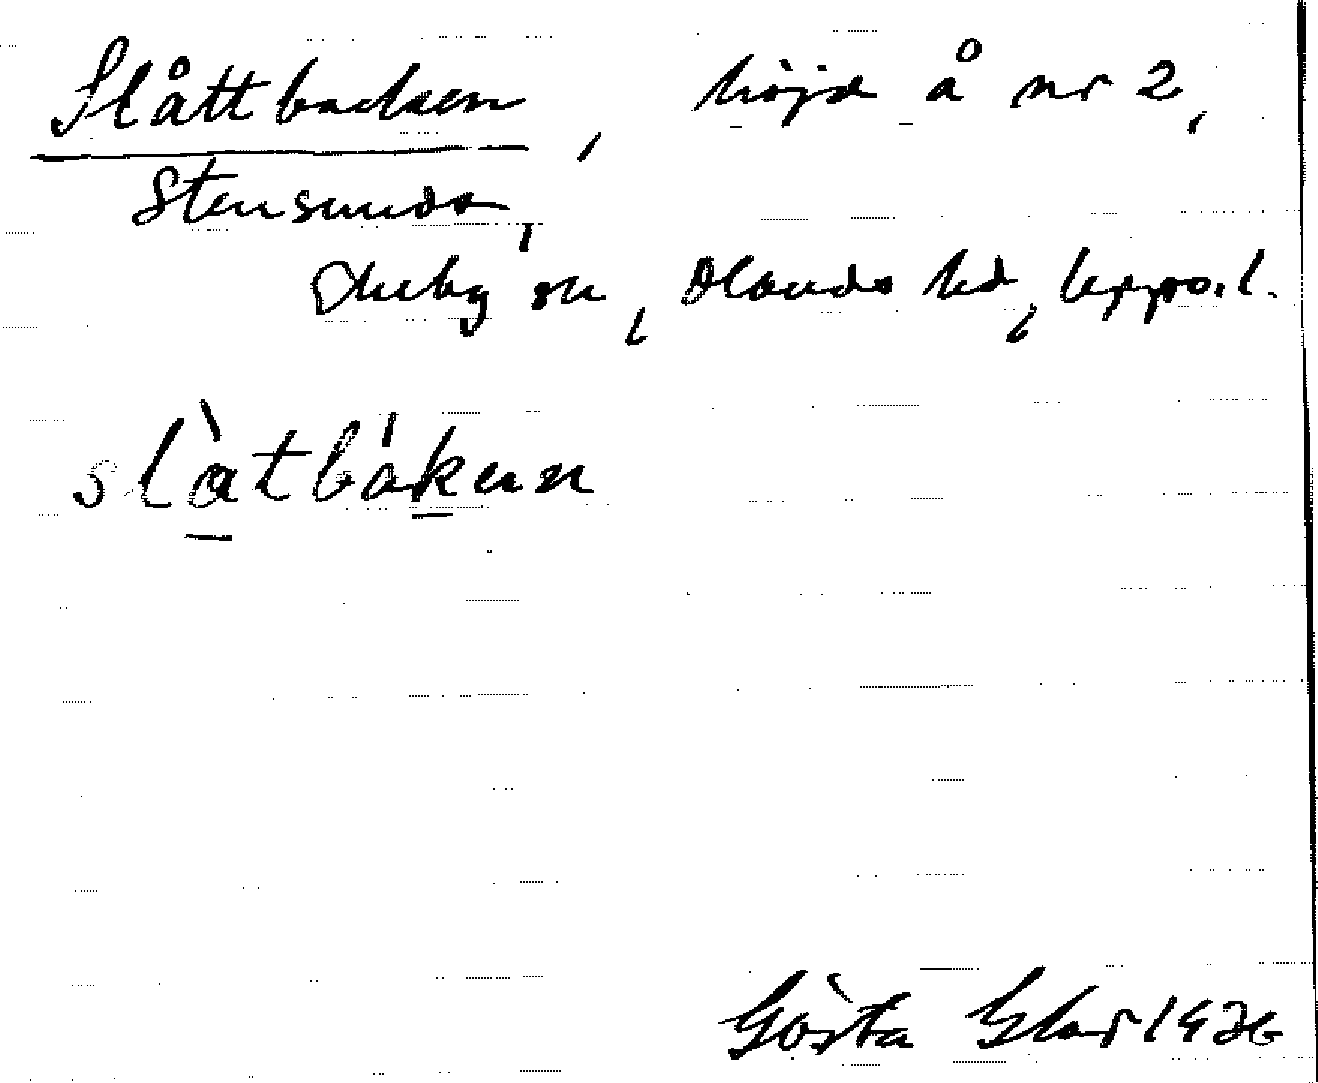 Slåttbacken, höjd å nr 2,
Stensunda,
sn, Olands hd, Uppsa. l.
slàtbákɐn
Gösta 1936